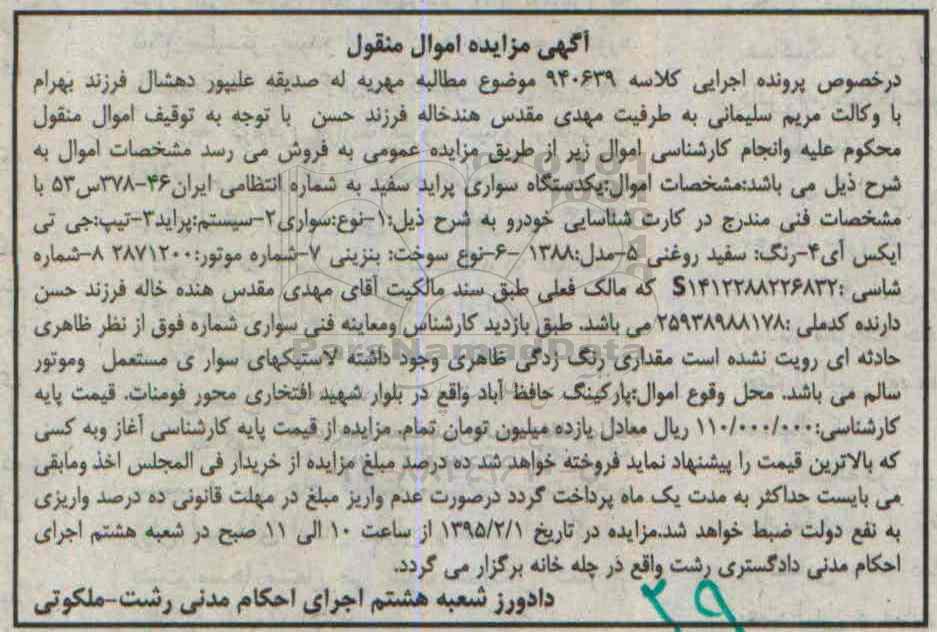 آگهی مزایده اموال منقول
درخصوص پرونده اجرایی کلاسه ۹۴۰۶۳۹ موضوع مطالبه مهریه له صدیقه علیپور دهشال فرزند بهرام
با وکالت مریم سلیمانی به طرفیت مهدی مقدس هندخاله فرزند حسن با توجه به توقیف اموال منقول
محکوم علیه وانجام کارشناسی اموال زیر از طریق مزایده عمومی به فروش می رسد مشخصات اموال به
شرح ذیل می باشد:مشخصات اموال:یکدستگاه سواری پراید سفید به شماره انتظامی ایران۴۶-۳۷۸س۵۳ با
مشخصات فنی مندرج در کارت شناسایی خودرو به شرح ذیل:۱-نوع:سواری۲-سیستم:پراید۳-تیپ:جی تی
ایکس آی۴-رنگ: سفید روغنی ۵-مدل:۱۳۸۸ -۶-نوع سوخت: بنزینی ۷-شماره موتور:۲۸۷۱۲۰۰ ۸-شماره
شاسی :S۱۴۱۲۲۸۸۲۲۶۸۳۲ که مالک فعلی طبق سند مالکیت آقای مهدی مقدس هنده خاله فرزند حسن
دارنده کدملی :۲۵۹۳۸۹۸۸۱۷۸ می باشد. طبق بازدید کارشناس ومعاینه فنی سواری شماره فوق از نظر ظاهری
حادثه ای رویت نشده است مقداری رنگ زدگی ظاهری وجود داشته لاستیکهای سوار ی مستعمل وموتور
سالم می باشد. محل وقوع اموال:پارکینگ حافظ آباد واقع در بلوار شهید افتخاری محور فومنات. قیمت پایه
کارشناسی:۱۱۰/۰۰۰/۰۰۰ ریال معادل یازده میلیون تومان تمام. مزایده از قیمت پایه کارشناسی آغاز وبه کسی
که بالاترین قیمت را پیشنهاد نماید فروخته خواهد شد ده درصد مبلغ مزایده از خریدار فی المجلس اخذ ومابقی
می بایست حداکثر به مدت یک ماه پرداخت گردد درصورت عدم واریز مبلغ در مهلت قانونی ده درصد واریزی
به نفع دولت ضبط خواهد شد.مزایده در تاریخ ۱۳۹۵/۲/۱ از ساعت ۱۰ الی ۱۱ صبح در شعبه هشتم اجرای
احکام مدنی دادگستری رشت واقع در چله خانه برگزار می گردد.
دادورز شعبه هشتم اجرای احکام مدنی رشت-ملکوتی
۲۹
ParsNamadData